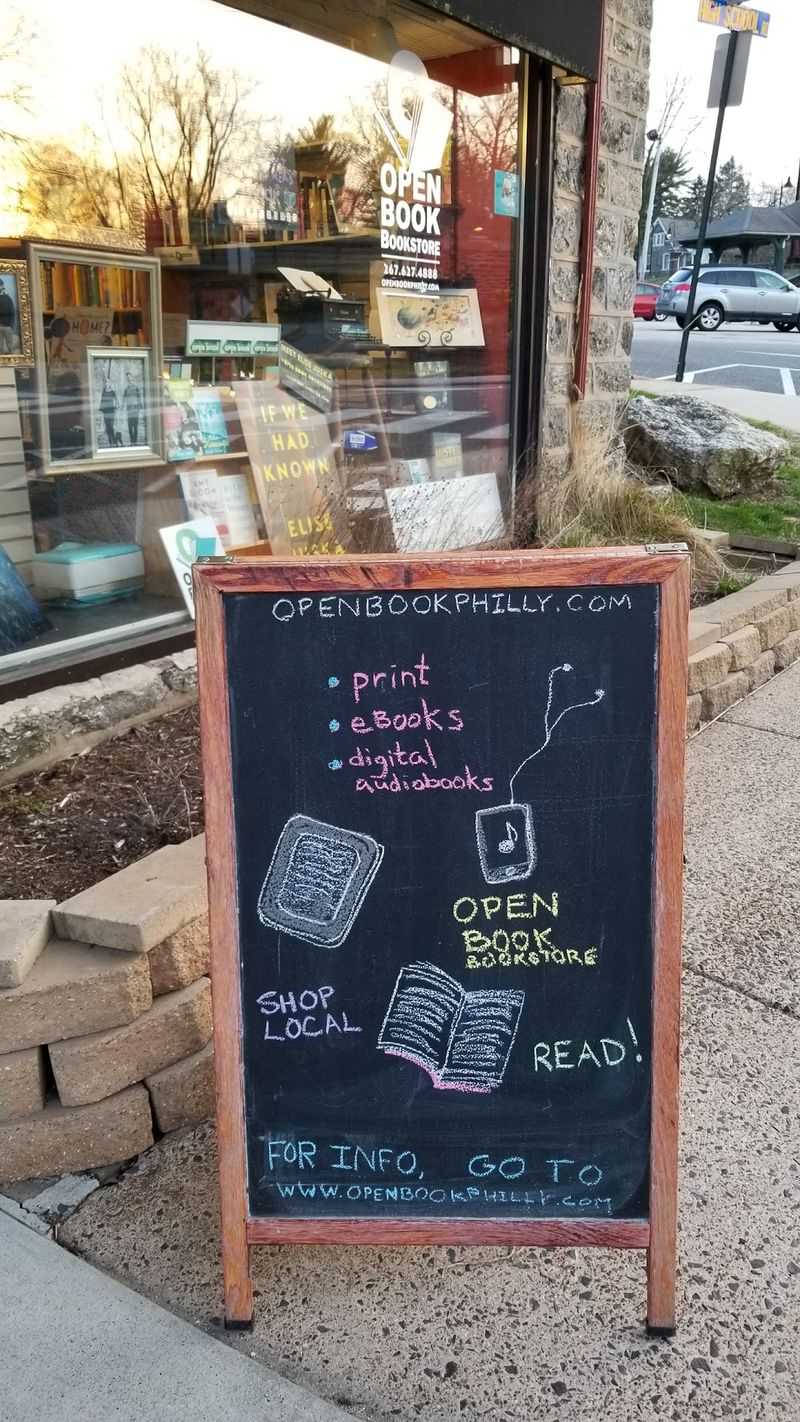 HIGH SCHOOL
OPEN
BOOK
BOOKSTORE
267.627.4888
OPENBOOKPHILLY.COM
HOME?
IF WE
HAD
KNOWN
ELISE
OPENBOOKPHILLY.COM
• print
• eBooks
• digital
audiobooks
OPEN
BOOK
BOOKSTORE
SHOP
LOCAL
READ!
FOR INFO, GO TO
WWW.OPENBOOKPHILLY.COM